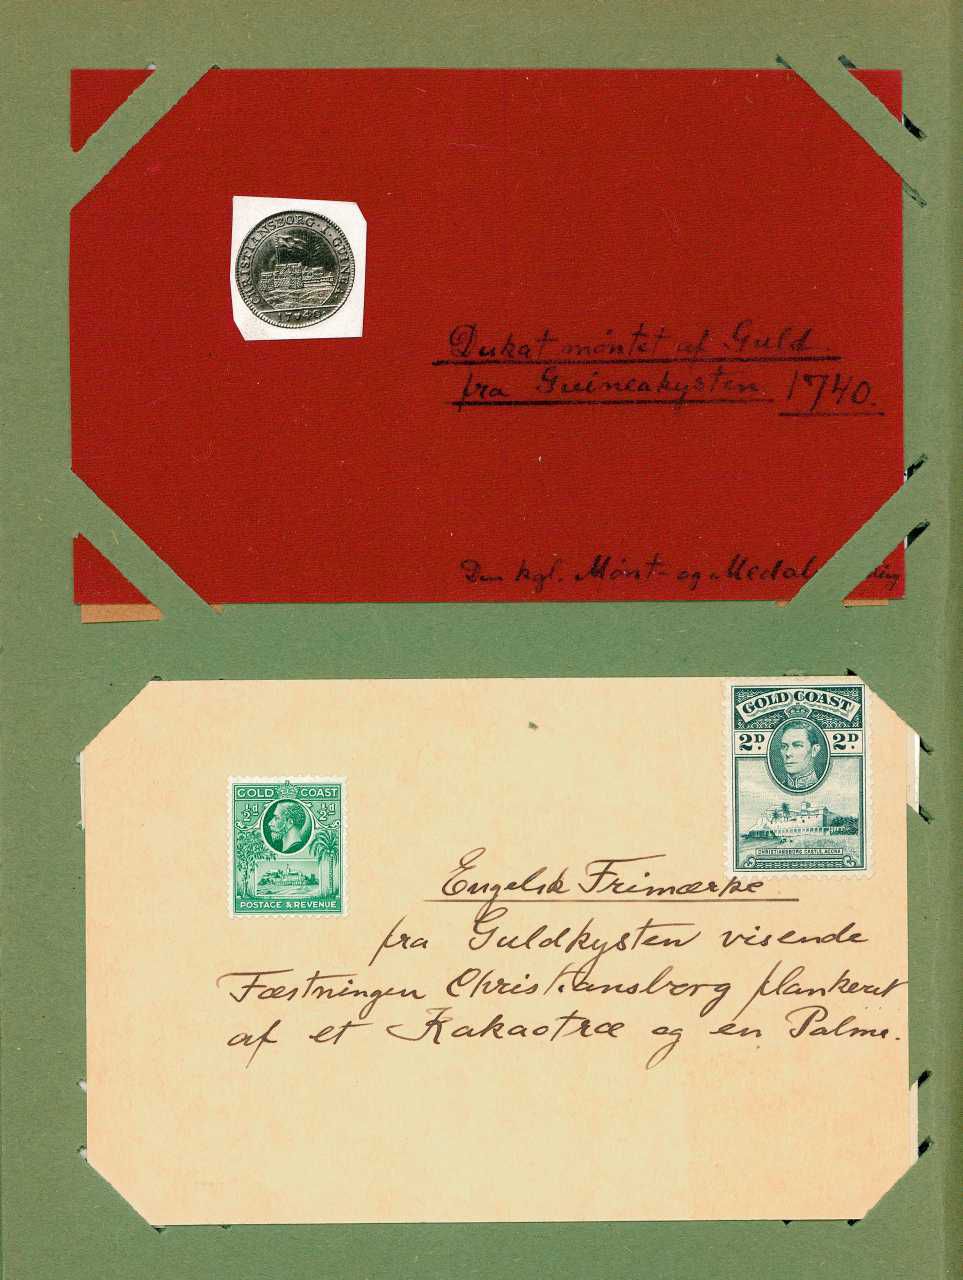 CHRISTIANSBORG · I · GUINEA
1746
Dukat møntet af Guld
fra Guineakysten. 1740.
Den kgl. Mønt- og Medal
GOLD COAST
½d ½d
POSTAGE & REVENUE
GOLD COAST
2D. 2D.
CHRISTIANSBORG CASTLE, ACCRA
Engelsk Frimærke
fra Guldkysten visende
Fæstningen Christiansborg flankeret
af et Kakaotræ og en Palme.